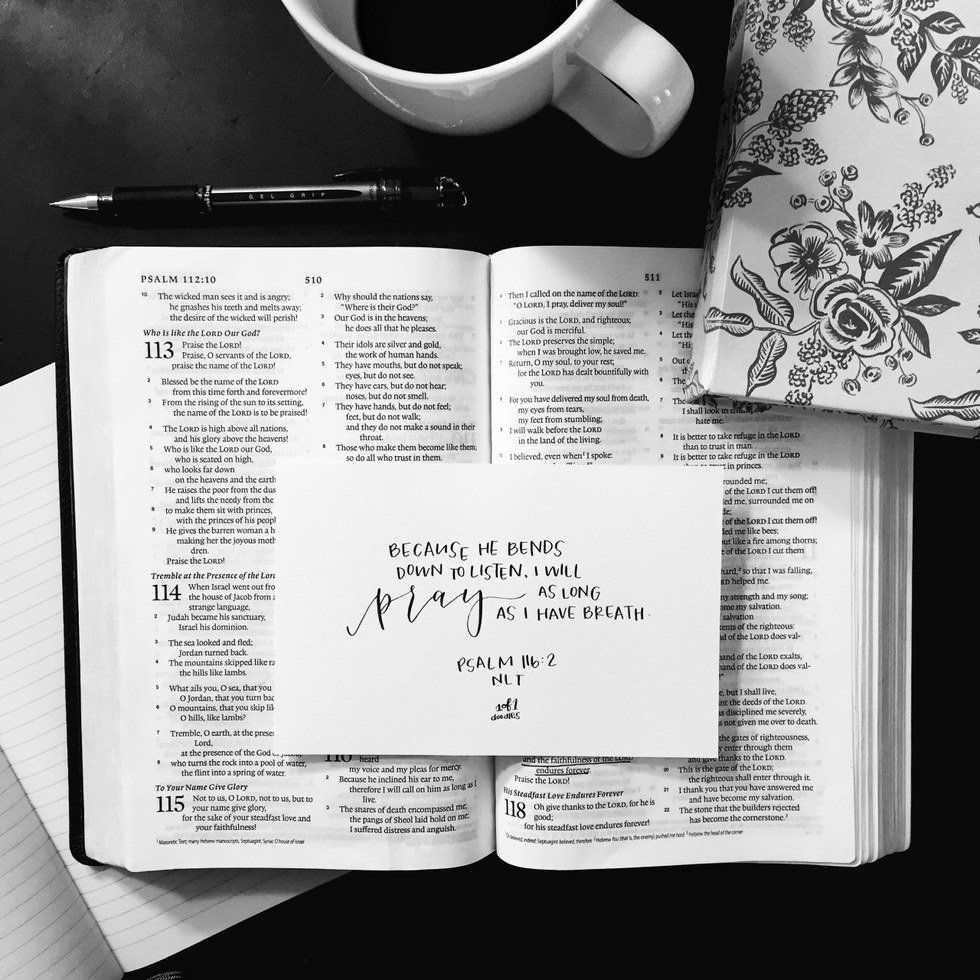 GEL GRIP
PSALM 112:10
510
10 The wicked man sees it and is angry;
he gnashes his teeth and melts away;
the desire of the wicked will perish!
Who Is like the LORD Our God?
113 Praise the LORD!
Praise, O servants of the LORD,
praise the name of the LORD!
2 Blessed be the name of the LORD
from this time forth and forevermore!
3 From the rising of the sun to its setting,
the name of the LORD is to be praised!
4 The LORD is high above all nations,
and his glory above the heavens!
5 Who is like the LORD our God,
who is seated on high,
6 who looks far down
on the heavens and the earth
7 He raises the poor from the dus
and lifts the needy from the
8 to make them sit with princes,
with the princes of his peopl
9 He gives the barren woman a h
making her the joyous moth
dren.
Praise the LORD!
Tremble at the Presence of the LORD
114 When Israel went out fro
the house of Jacob from a
strange language,
2 Judah became his sanctuary,
Israel his dominion.
3 The sea looked and fled;
Jordan turned back.
4 The mountains skipped like ra
the hills like lambs.
5 What ails you, O sea, that you
O Jordan, that you turn bac
6 O mountains, that you skip lik
O hills, like lambs?
7 Tremble, O earth, at the prese
Lord,
at the presence of the God of Jacob,
8 who turns the rock into a pool of water,
the flint into a spring of water.
To Your Name Give Glory
115 Not to us, O LORD, not to us, but to
your name give glory,
for the sake of your steadfast love and
your faithfulness!
2 Why should the nations say,
"Where is their God?"
3 Our God is in the heavens;
he does all that he pleases.
4 Their idols are silver and gold,
the work of human hands.
5 They have mouths, but do not speak;
eyes, but do not see.
6 They have ears, but do not hear;
noses, but do not smell.
7 They have hands, but do not feel;
feet, but do not walk;
and they do not make a sound in their
throat.
8 Those who make them become like them;
so do all who trust in them.
116
heard
my voice and my pleas for mercy.
2 Because he inclined his ear to me,
therefore I will call on him as long as I
live.
3 The snares of death encompassed me;
the pangs of Sheol laid hold on me;
I suffered distress and anguish.
1 Masoretic Text; many Hebrew manuscripts, Septuagint, Syriac O house of Israel
511
4 Then I called on the name of the LORD:
"O LORD, I pray, deliver my soul!"
5 Gracious is the LORD, and righteous;
our God is merciful.
6 The LORD preserves the simple;
when I was brought low, he saved me.
7 Return, O my soul, to your rest;
for the LORD has dealt bountifully with
you.
8 For you have delivered my soul from death,
my eyes from tears,
my feet from stumbling;
9 I will walk before the LORD
in the land of the living.
10 I believed, even when I spoke:
and the faithfulness of the LORD
endures forever.
Praise the LORD!
His Steadfast Love Endures Forever
118 Oh give thanks to the LORD, for he is
good;
for his steadfast love endures forever!
2 Let Israe
"His
3 Let the
"His
4 Let t
"H
5 Out
6 The
7 The
I shall look in
hate me.
8 It is better to take refuge in the LORD
than to trust in man.
9 It is better to take refuge in the LORD
than to trust in princes.
rounded me;
of the LORD I cut them off!
ed me, surrounded me on
of the LORD I cut them off!
ed me like bees;
out like a fire among thorns;
of the LORD I cut them
hard, so that I was falling,
LORD helped me.
my strength and my song;
ome my salvation.
salvation
tents of the righteous:
nd of the LORD does val-
and of the LORD exalts,
nd of the LORD does val-
e, but I shall live,
nt the deeds of the LORD.
s disciplined me severely,
s not given me over to death.
the gates of righteousness,
y enter through them
and give thanks to the LORD.
20 This is the gate of the LORD;
the righteous shall enter through it.
21 I thank you that you have answered me
and have become my salvation.
22 The stone that the builders rejected
has become the cornerstone.
BECAUSE HE BENDS
DOWN TO LISTEN, I WILL
pray AS LONG
AS I HAVE BREATH.
PSALM 116:2
NLT
1of1
doodles